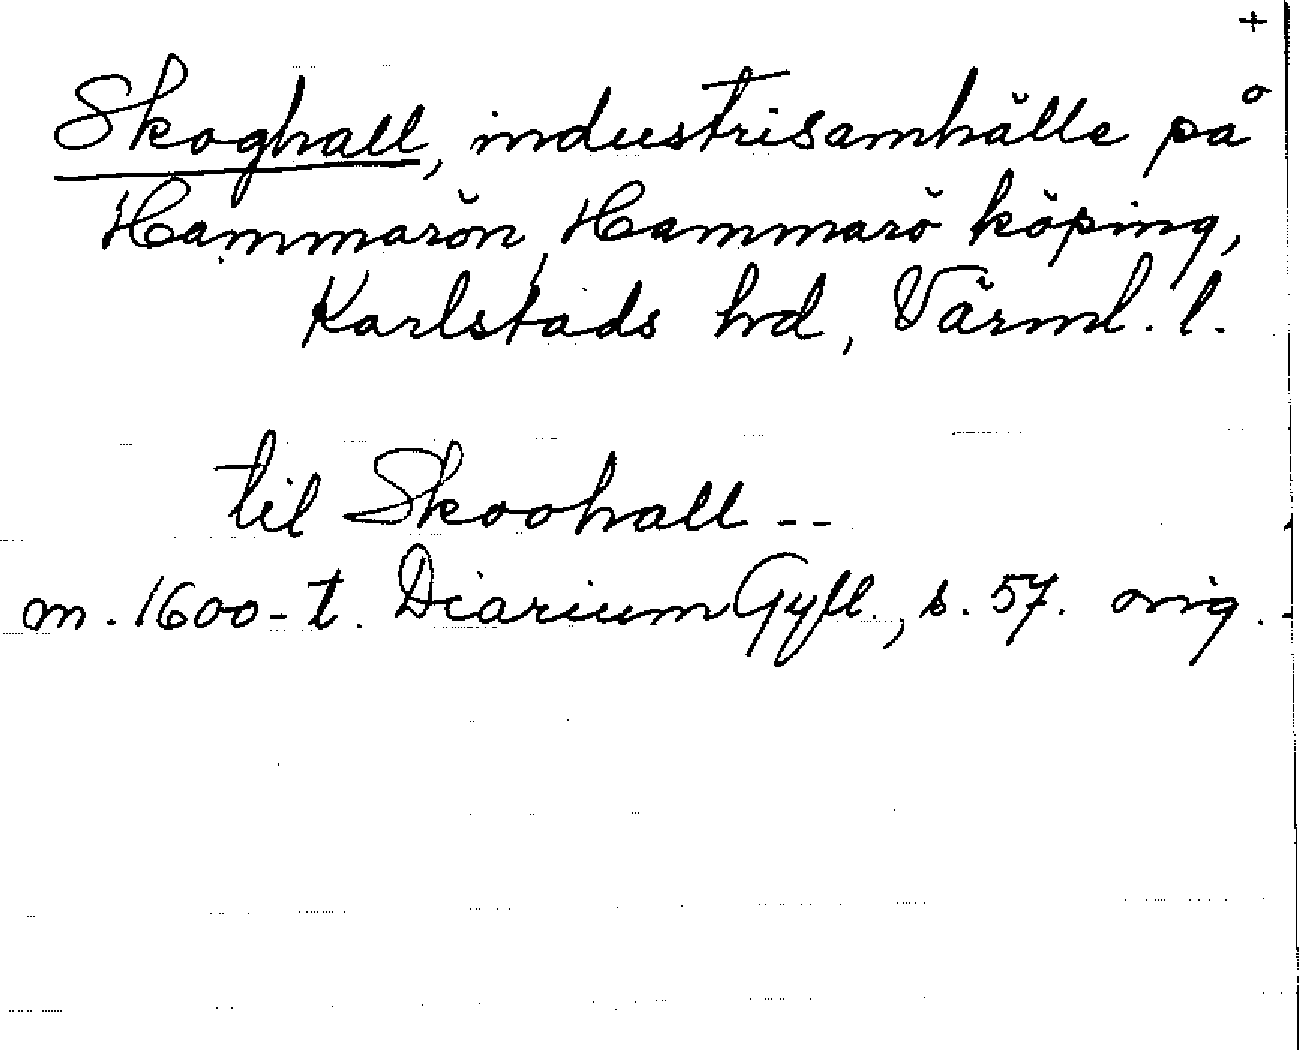 +
Skoghall, industrisamhälle på
Hammarön, Hammarö köping,
Karlstads hd, Värml. l.
til Skoohall --
m. 1600-t. Diarium Gyll., s. 57. orig.